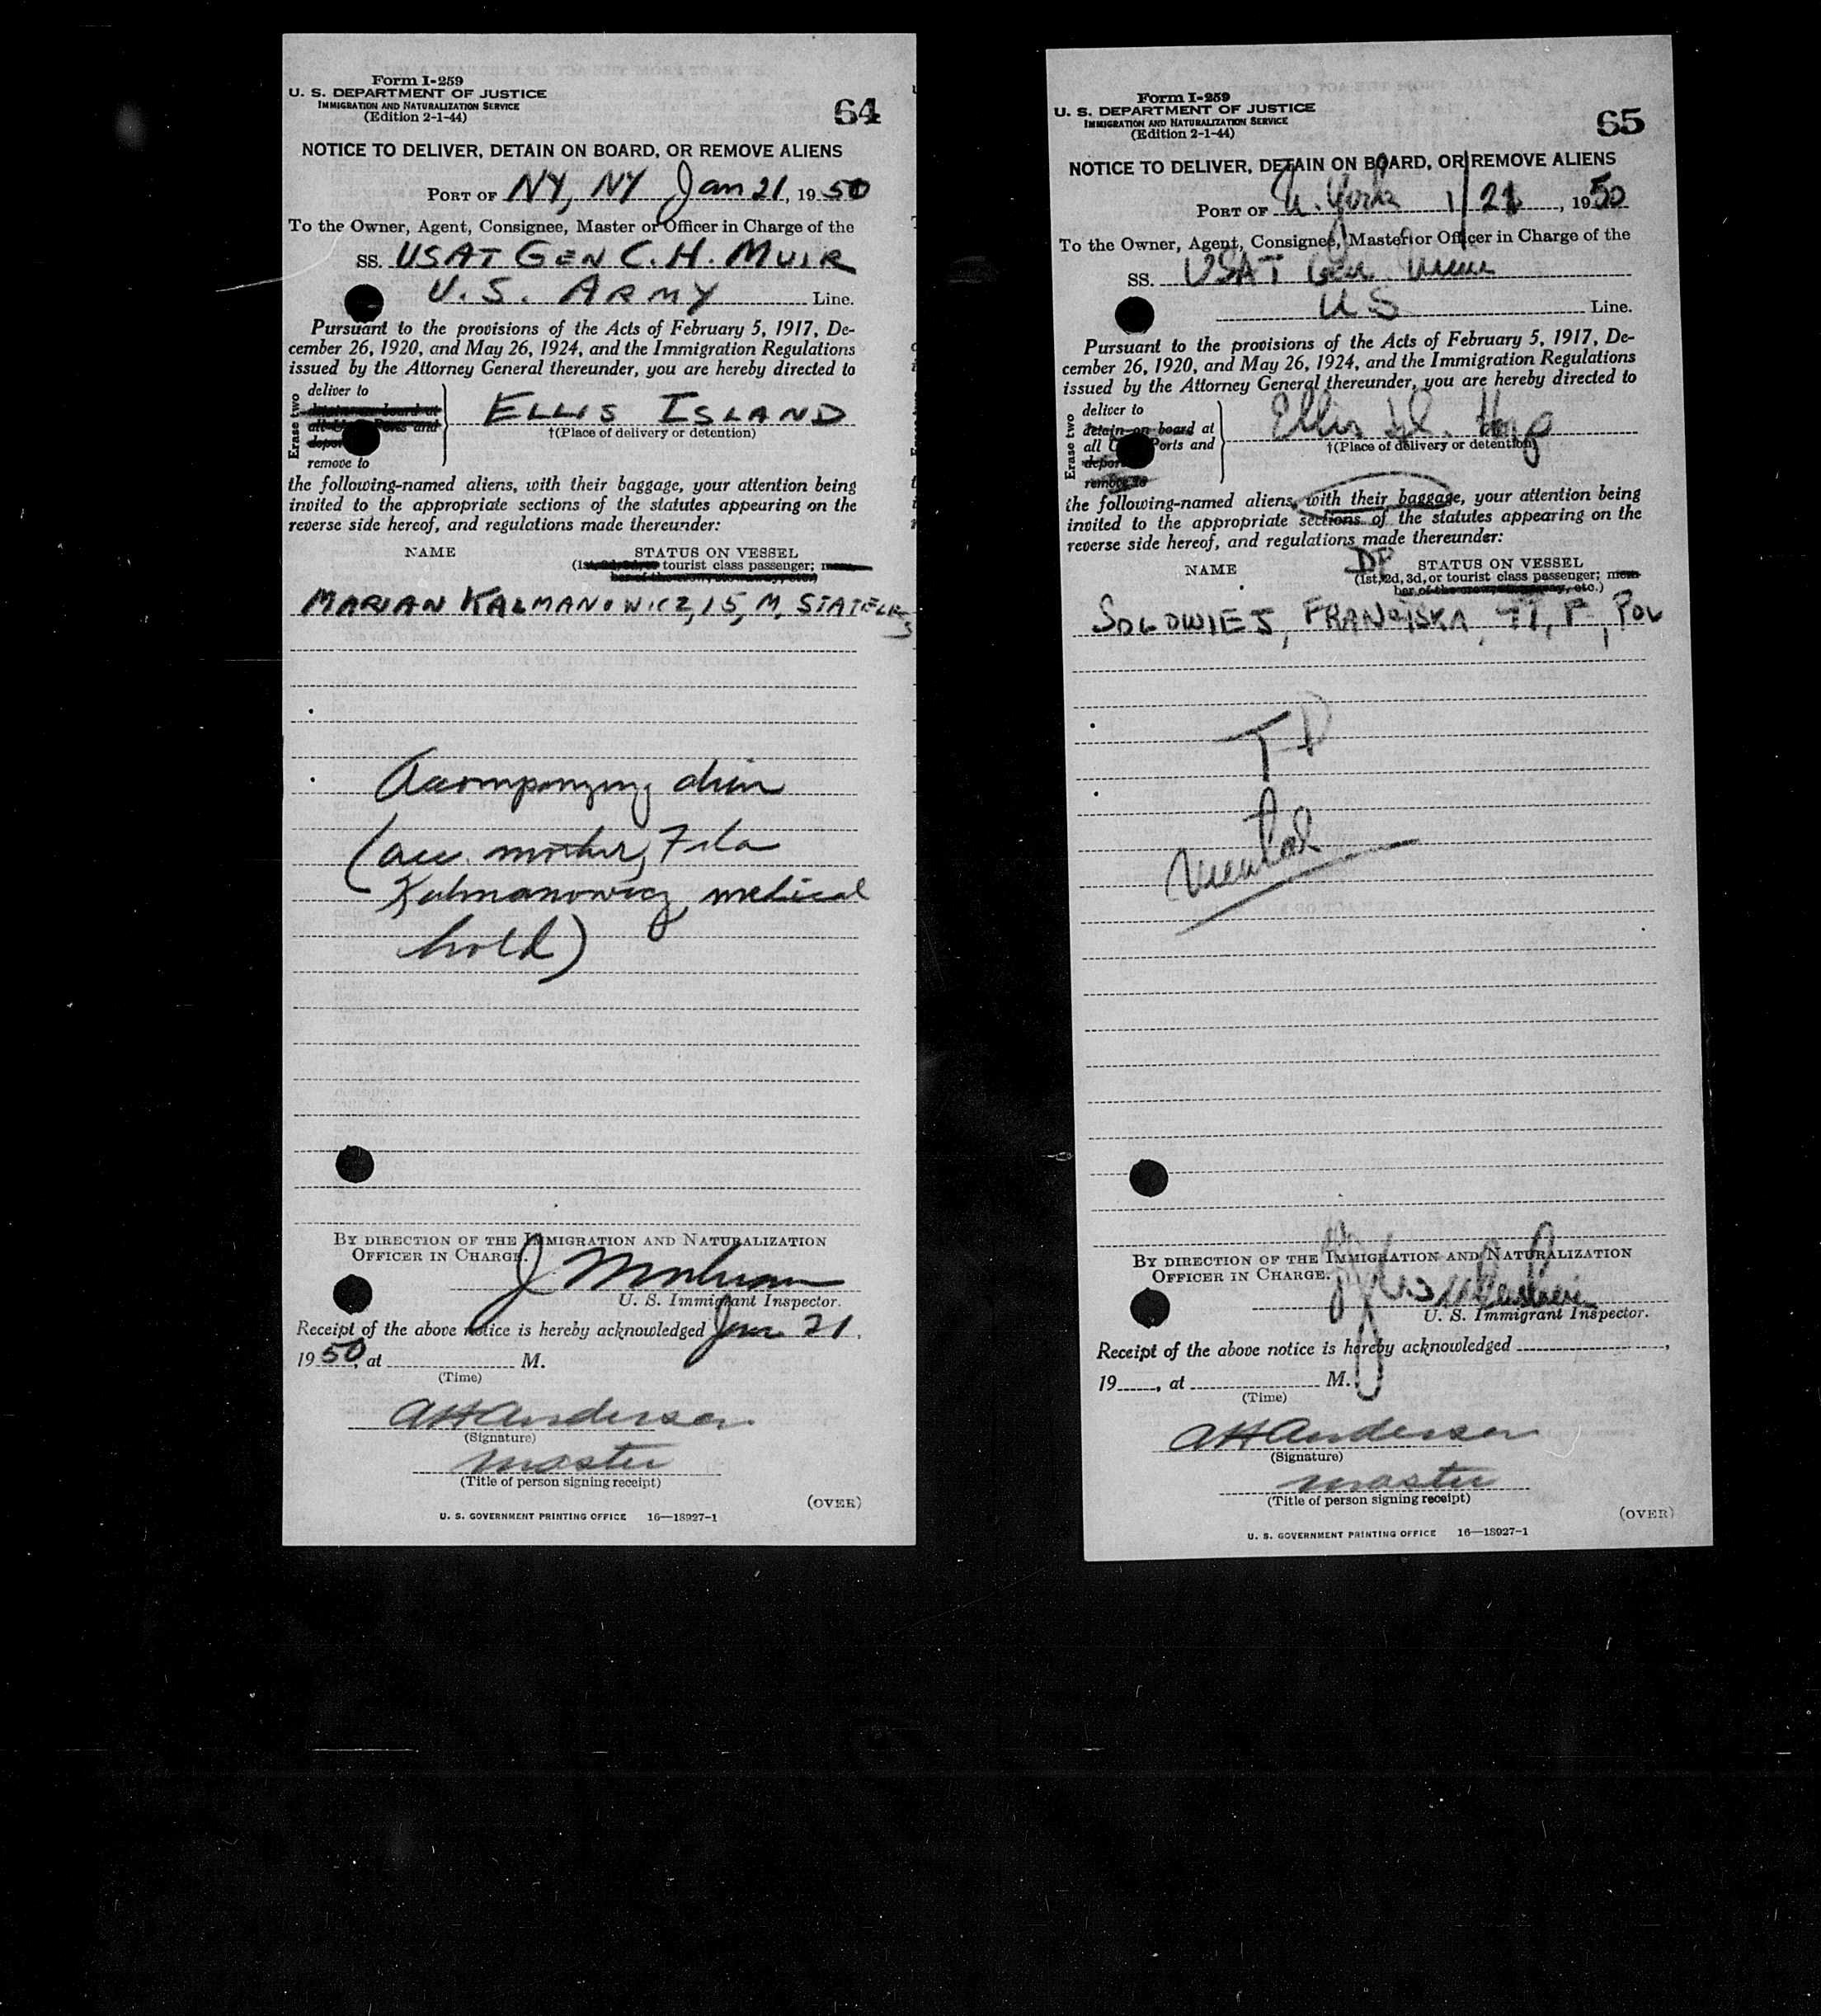 Form I-259
U. S. DEPARTMENT OF JUSTICE
IMMIGRATION AND NATURALIZATION SERVICE
(Edition 2-1-44)
64
NOTICE TO DELIVER, DETAIN ON BOARD, OR REMOVE ALIENS
PORT OF NY, NY Jan 21, 19 50
To the Owner, Agent, Consignee, Master or Officer in Charge of the
SS. USAT GEN C. H. MUIR
U. S. ARMY Line.
Pursuant to the provisions of the Acts of February 5, 1917, De-
cember 26, 1920, and May 26, 1924, and the Immigration Regulations
issued by the Attorney General thereunder, you are hereby directed to
Erase two
deliver to
detain on board at
all Ports and
depor
remove to
ELLIS ISLAND
†(Place of delivery or detention)
the following-named aliens, with their baggage, your attention being
invited to the appropriate sections of the statutes appearing on the
reverse side hereof, and regulations made thereunder:
NAME STATUS ON VESSEL
(1st, 2d, 3d, or tourist class passenger; mem-
ber of the crew, stowaway, etc.)
MARIAN KALMANOWICZ, 15, M, STATELESS
Accompanying alien
(acc. mother, Fela
Kalmanowicz, medical
hold)
BY DIRECTION OF THE IMMIGRATION AND NATURALIZATION
OFFICER IN CHARGE.
J
U. S. Immigrant Inspector.
Receipt of the above notice is hereby acknowledged Jan 21,
19 50, at M.
(Time)
AH Anderson
(Signature)
Master
(Title of person signing receipt)
(OVER)
U. S. GOVERNMENT PRINTING OFFICE 16—18927-1
Form I-259
U. S. DEPARTMENT OF JUSTICE
IMMIGRATION AND NATURALIZATION SERVICE
(Edition 2-1-44)
65
NOTICE TO DELIVER, DETAIN ON BOARD, OR REMOVE ALIENS
PORT OF N. York 1/21, 19 50
To the Owner, Agent, Consignee, Master or Officer in Charge of the
SS. USAT Gen. Muir
US Line.
Pursuant to the provisions of the Acts of February 5, 1917, De-
cember 26, 1920, and May 26, 1924, and the Immigration Regulations
issued by the Attorney General thereunder, you are hereby directed to
Erase two
deliver to
detain on board at
all Ports and
depor
remove to
Ellis Isl. Hosp
†(Place of delivery or detention)
the following-named aliens, with their baggage, your attention being
invited to the appropriate sections of the statutes appearing on the
reverse side hereof, and regulations made thereunder:
DP
NAME STATUS ON VESSEL
(1st, 2d, 3d, or tourist class passenger; mem-
ber of the crew, stowaway, etc.)
SOLOWIEJ, FRANCISKA, 77, F, POL
TD
Mental
BY DIRECTION OF THE IMMIGRATION AND NATURALIZATION
OFFICER IN CHARGE.
U. S. Immigrant Inspector.
Receipt of the above notice is hereby acknowledged ,
19 , at M.
(Time)
AH Anderson
(Signature)
Master
(Title of person signing receipt)
(OVER)
U. S. GOVERNMENT PRINTING OFFICE 16—18927-1